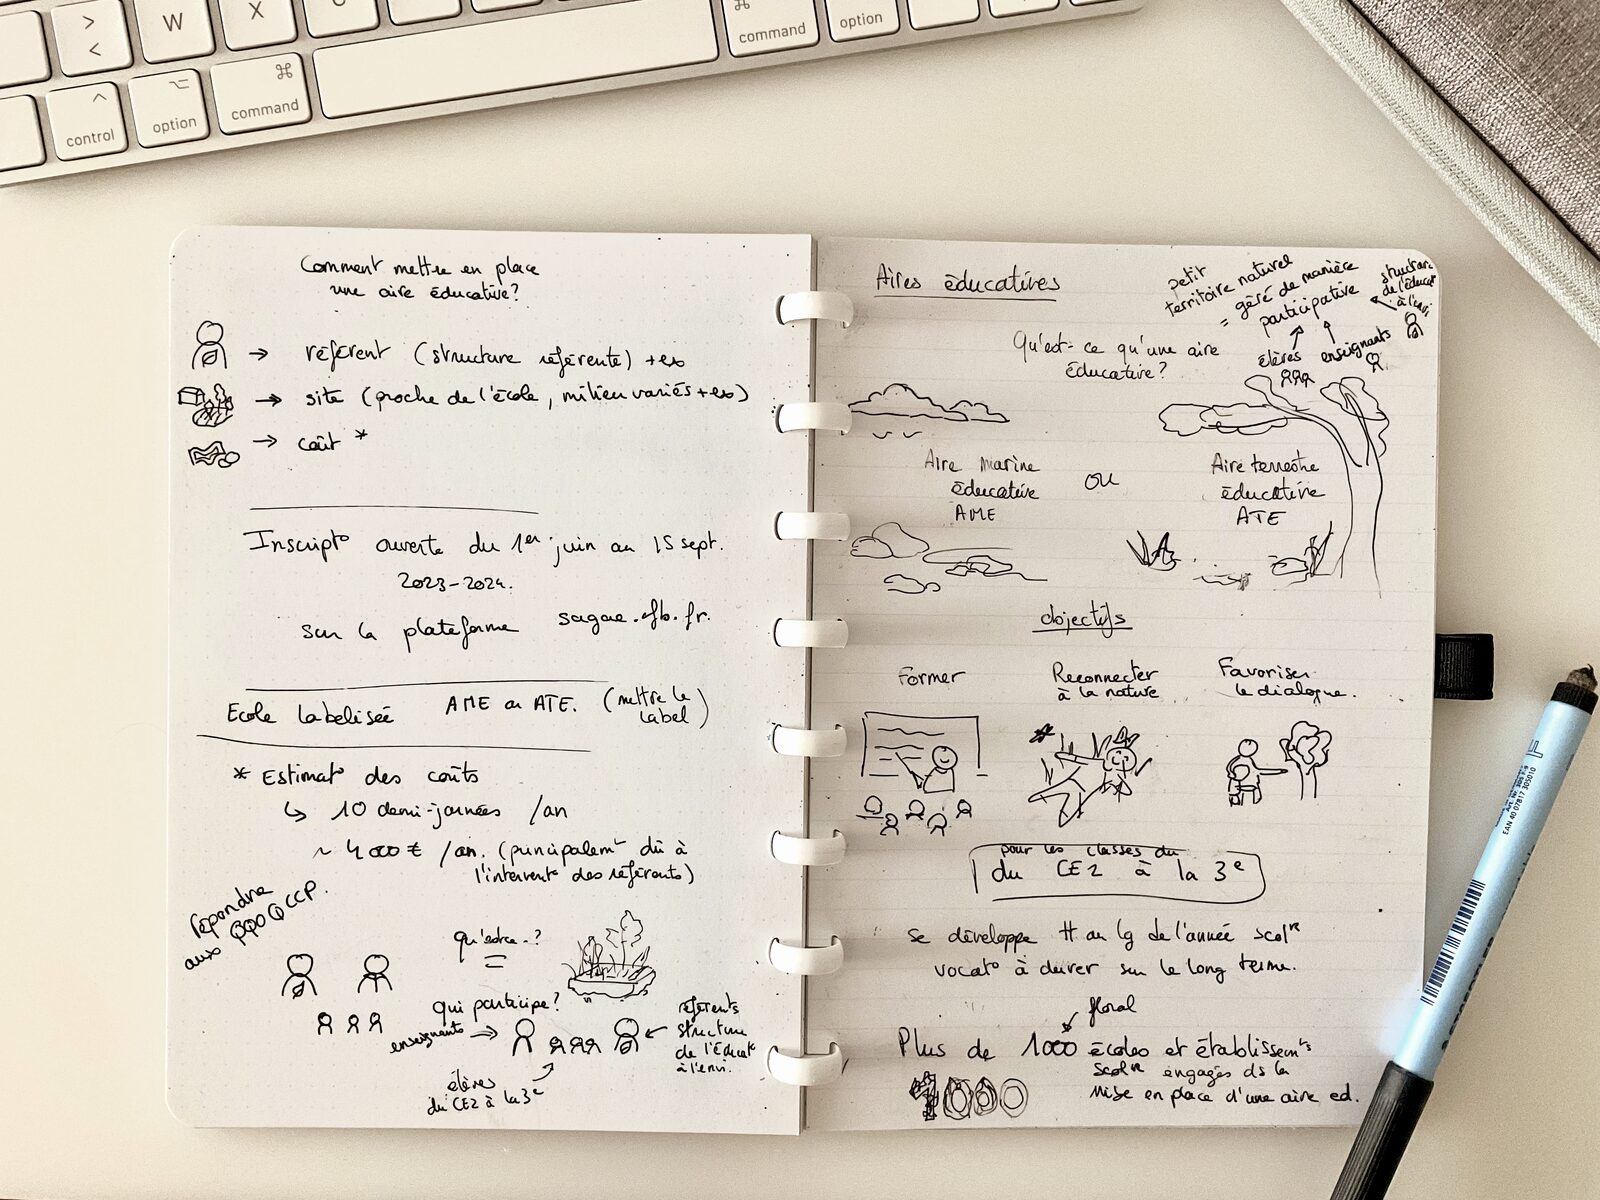 > <
W
X
command
option
control
option
command
Comment mettre en place
une aire éducative?
→ référent (structure référente) + ex
→ site (proche de l'école, milieu variés + ex)
→ coût *
Inscript° ouverte du 1er juin au 15 sept.
2023-2024.
sur la plateforme sagae.ofb.fr.
Ecole labelisée AME ou ATE. (mettre le
label)
* Estimat° des coûts
↳ 10 demi-journées /an
~ 4000 € /an. (principalemt dû à
l'intervent° des référents)
répondre
aux QQOQCCP.
qu'est-ce-?
qui participe?
enseignants →
référents
structure
de l'éducat°
à l'envi.
élèves
du CE2 à la 3e
Aires éducatives
petit
territoire naturel
= géré de manière
participative
structure
de l'éducat°
à l'envi
élèves enseignants
Qu'est-ce qu'une aire
éducative?
Aire marine
éducative
AME
OU
Aire terrestre
éducative
ATE
objectifs
Former
Reconnecter
à la nature
Favoriser
le dialogue.
pour les classes du
du CE2 à la 3e
se développe tt au lg de l'année scolre
vocat° à durer sur le long terme.
floral
Plus de 1000 écoles et établissemts
scolre engagés ds la
mise en place d'une aire ed.
1000
EAN 40 07817 305010